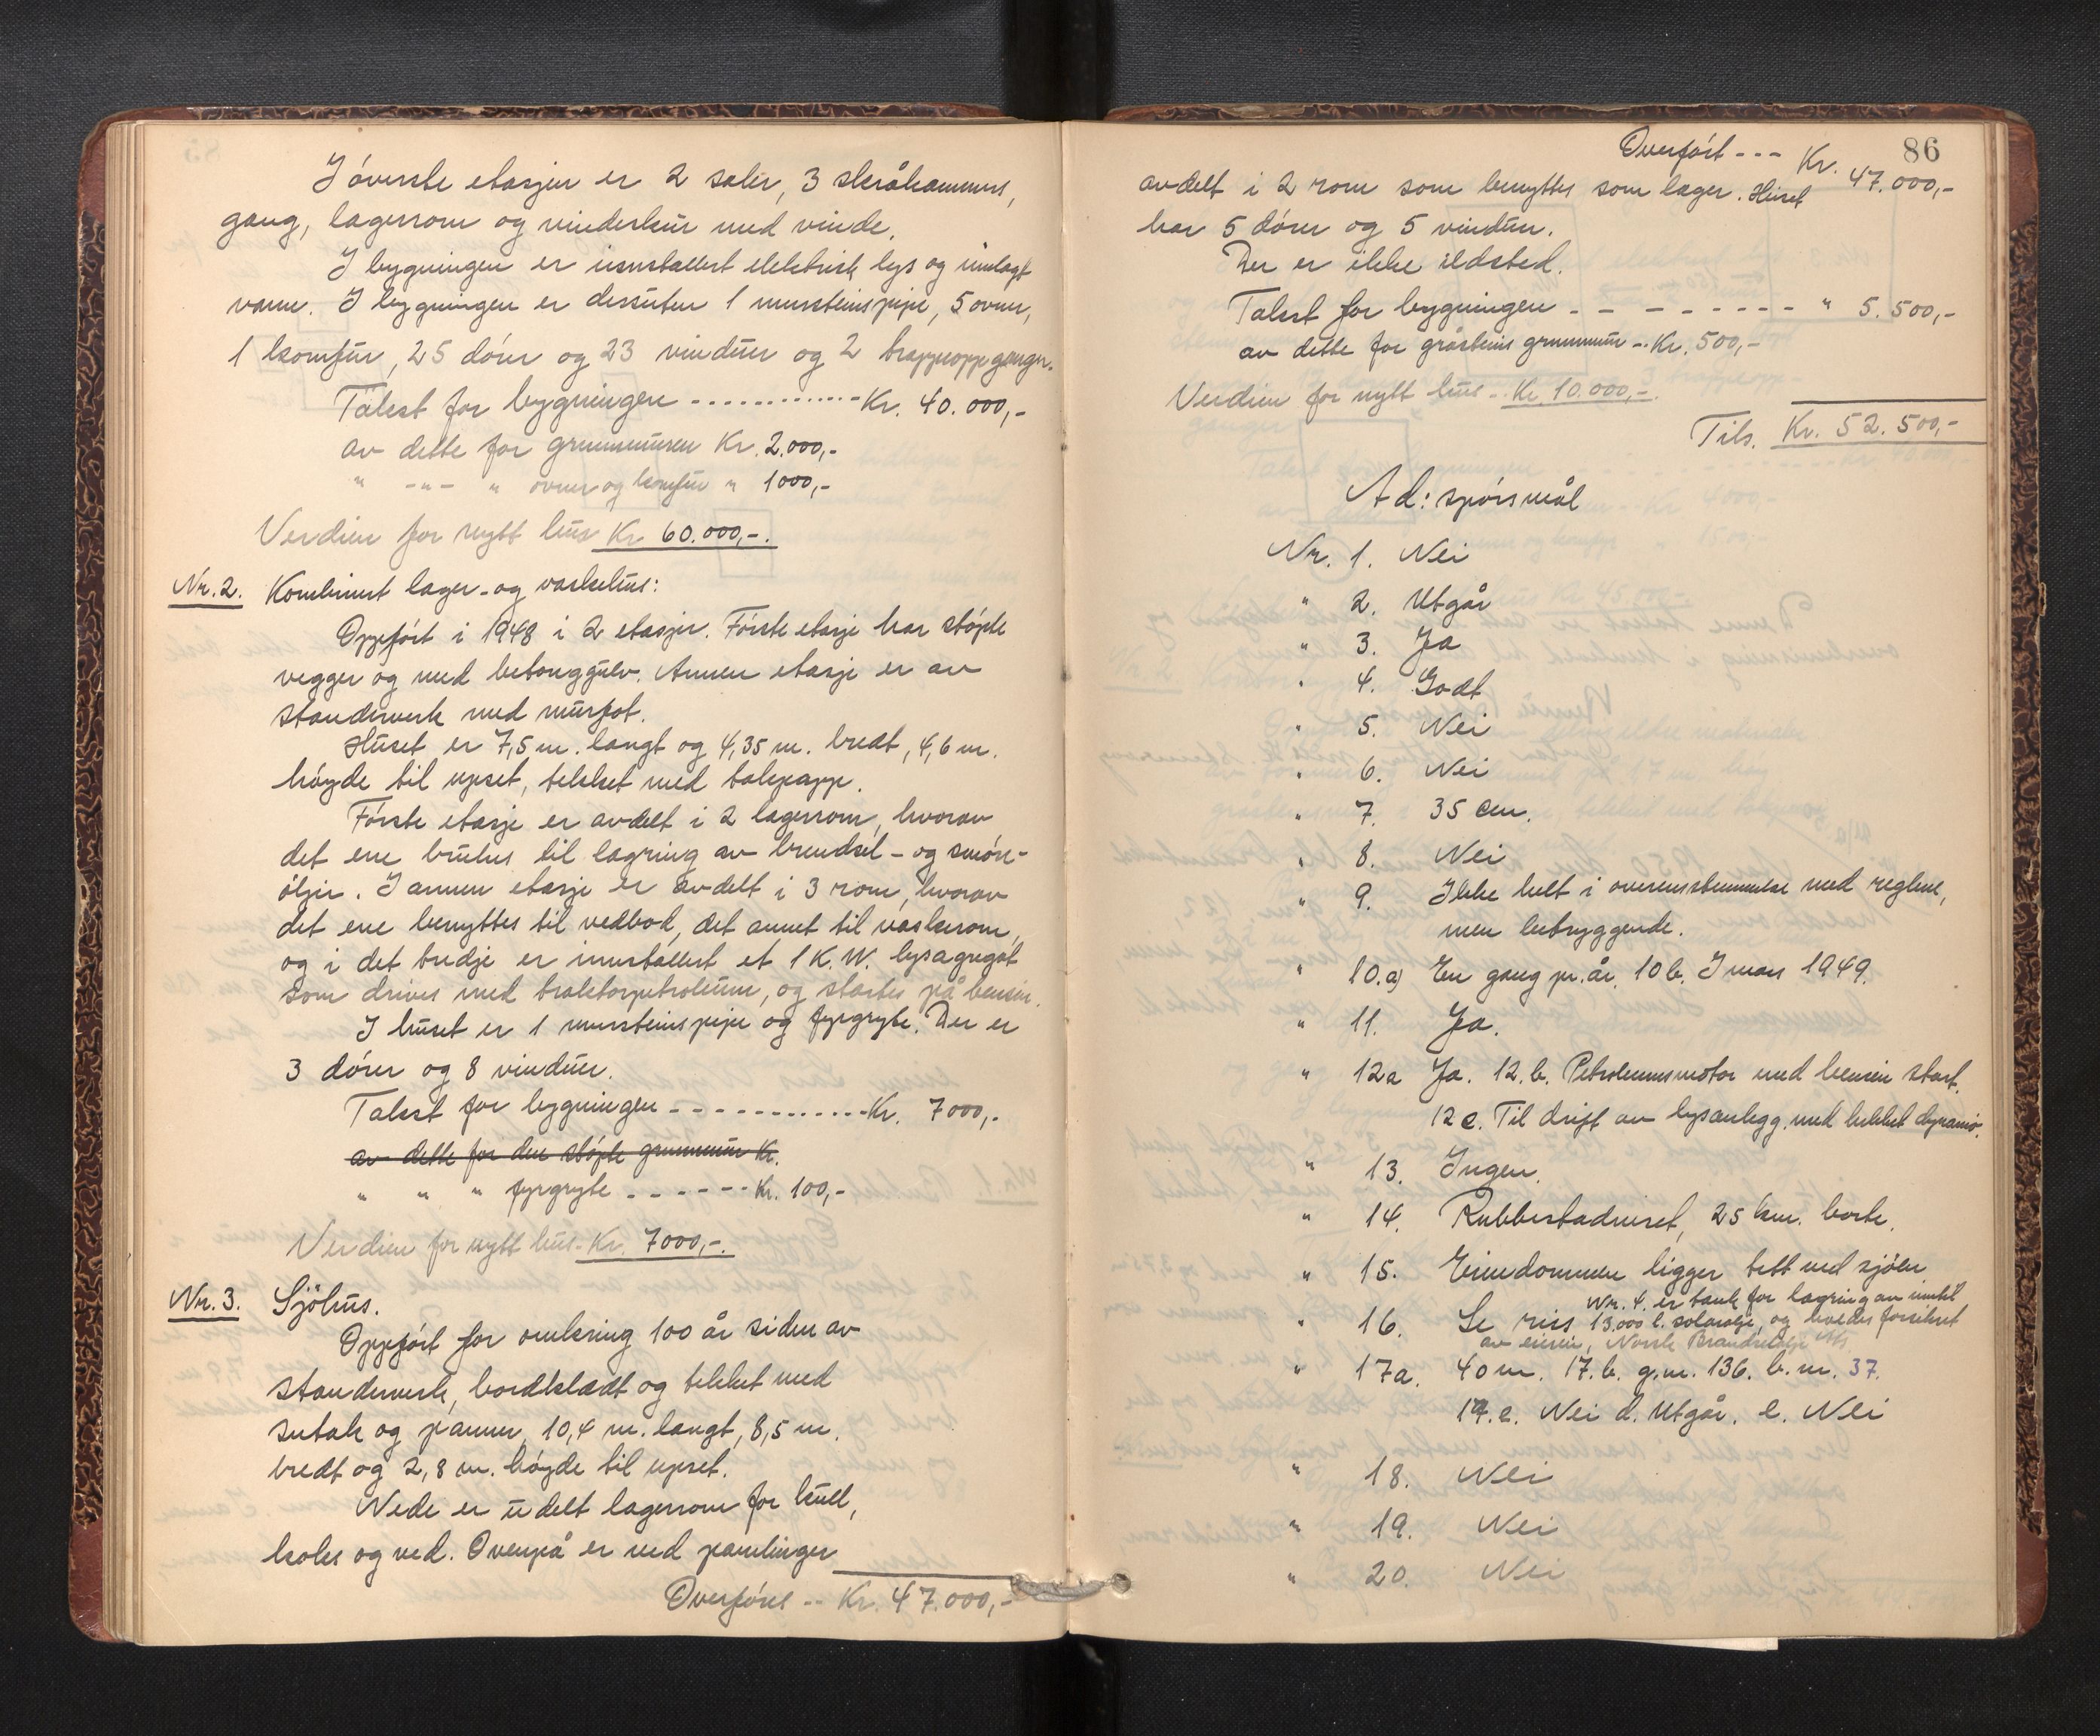 I øverste etasjen er 2 saler, 3 skråkammers,
gang, lagerrom og vinderskur med vinde.
I bygningen er innstallert elektrisk lys og innlagt
vann. I bygningen er dessuten 1 mursteinspipe, 5 ovner,
1 komfur, 25 dører og 23 vinduer og 2 trappeoppganger.
Takst for bygningen ------------ Kr. 40.000,-
av dette for grunnmuren Kr. 2.000,-
" -"- " ovner og komfur " 1000,-
Verdien for nytt hus Kr 60.000,-.
Nr. 2. Kombinert lager- og vaskehus:
Oppført i 1948 i 2 etasjer. Første etasje har støpte
vegger og med betonggulv. Annen etasje er av
standerverk med murfot.
Huset er 7,5 m. langt og 4,35 m. bredt, 4,6 m.
høyde til upset, tekket med takpapp.
Første etasje er avdelt i 2 lagerrom, hvorav
det ene brukes til lagring av brendsel- og smøre-
oljer. I annen etasje er avdelt i 3 rom, hvorav
det ene benyttes til vedbod, det annet til vaskerom,
og i det tredje er innstallert et 1 K.W. lysagregat
som drives med traktorpetroleum, og startes på bensin.
I huset er 1 mursteinspipe og fyrgryte. Der er
3 dører og 8 vinduer.
Takst for bygningen ------------ Kr. 7000,-
av dette for den støpte grunnmur Kr.
" " " fyrgryte ------ Kr. 100,-
Verdien for nytt hus - Kr. 7000,-.
Nr. 3. Sjöhus.
Oppført for omkring 100 år siden av
standerverk, bordkledt og tekket med
sutak og panner, 10,4 m. langt, 8,5 m.
bredt og 2,8 m. høyde til upset.
Nede er udelt lagerrom for kull,
koks og ved. Ovenpå er ved panelinger
Overføres -- Kr. 47.000,-
86
Overført --- Kr. 47.000,-
avdelt i 2 rom som benyttes som lager. Huset
har 5 dører og 5 vinduer.
Der er ikke ildsted.
Takst for bygningen - - - - - - - - " 5.500,-
av dette for gråsteins grunnmur -- Kr. 500,-
Verdien for nytt hus -- Kr. 10.000,-.
Tils. Kr. 52.500,-
Ad: spørsmål
Nr. 1. Nei
" 2. Utgår
" 3. Ja
" 4. Godt
" 5. Nei
" 6. Nei
" 7. 35 cm.
" 8. Nei
" 9. Ikke helt i overensstemmelse med reglene,
men betryggende.
" 10.a) En gang pr. år. 10 b. I mars 1949.
" 11. Ja.
" 12a Ja. 12. b. Petroleumsmotor med bensin start.
12 c. Til drift av lysanlegg, med lukket dynamo.
" 13. Ingen.
" 14. Rubbestadneset, 25 km. borte.
" 15. Eiendommen ligger tett ved sjøen
" 16. Se riss Nr. 4. er tank for lagring av inntil
13.000 l. solarolje, og hvedes forsikret
av eieren, Norsk Brændselolje A/s
" 17a. 40 m. 17. b. g.nr. 136. b. nr. 37.
17. c. Nei d. Utgår. e. Nei
" 18. Nei
" 19. Nei
" 20. Nei